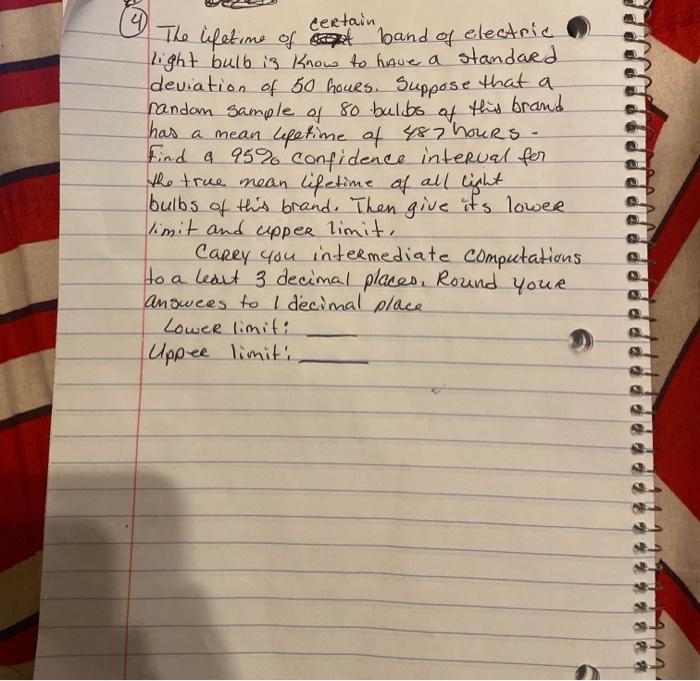 4 The lifetime of certain band of electric
light bulb is Know to have a standard
deviation of 50 hours. Suppose that a
random sample of 80 bulbs of this brand
has a mean lifetime of 487 hours.
Find a 95% confidence interval for
the true mean lifetime of all light
bulbs of this brand. Then give its lower
limit and upper limit.
Carry you intermediate computations
to a least 3 decimal places. Round your
answers to 1 decimal place
Lower limit:
Upper limit: